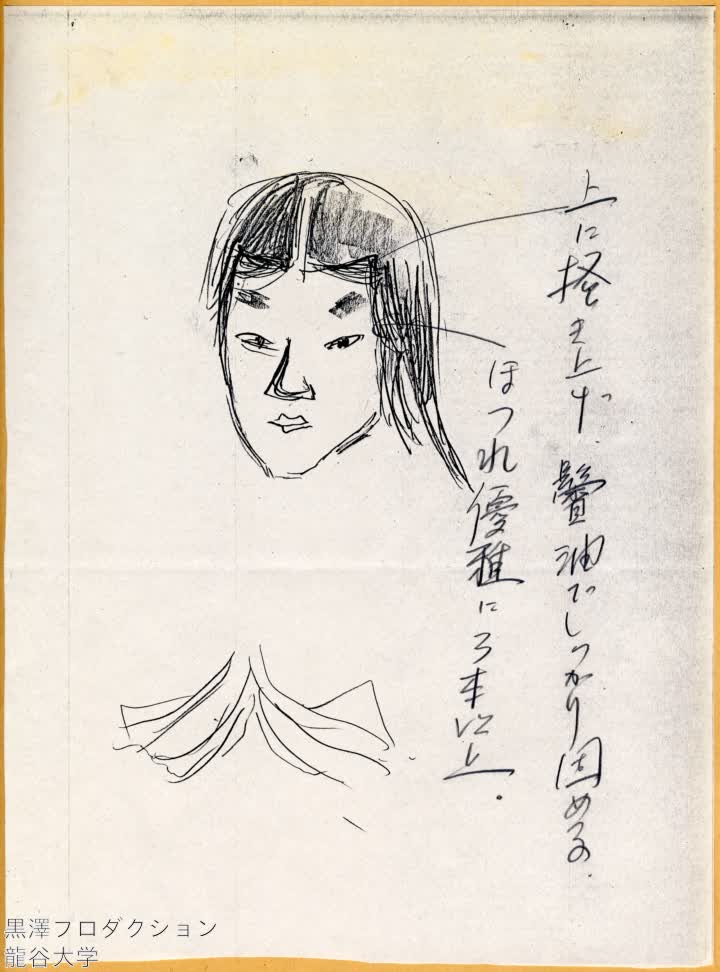 上に掻き上げ、鬢油でしっかり固める。
ほつれ優雅に3本以上。
黒澤フロダクション
龍谷大学